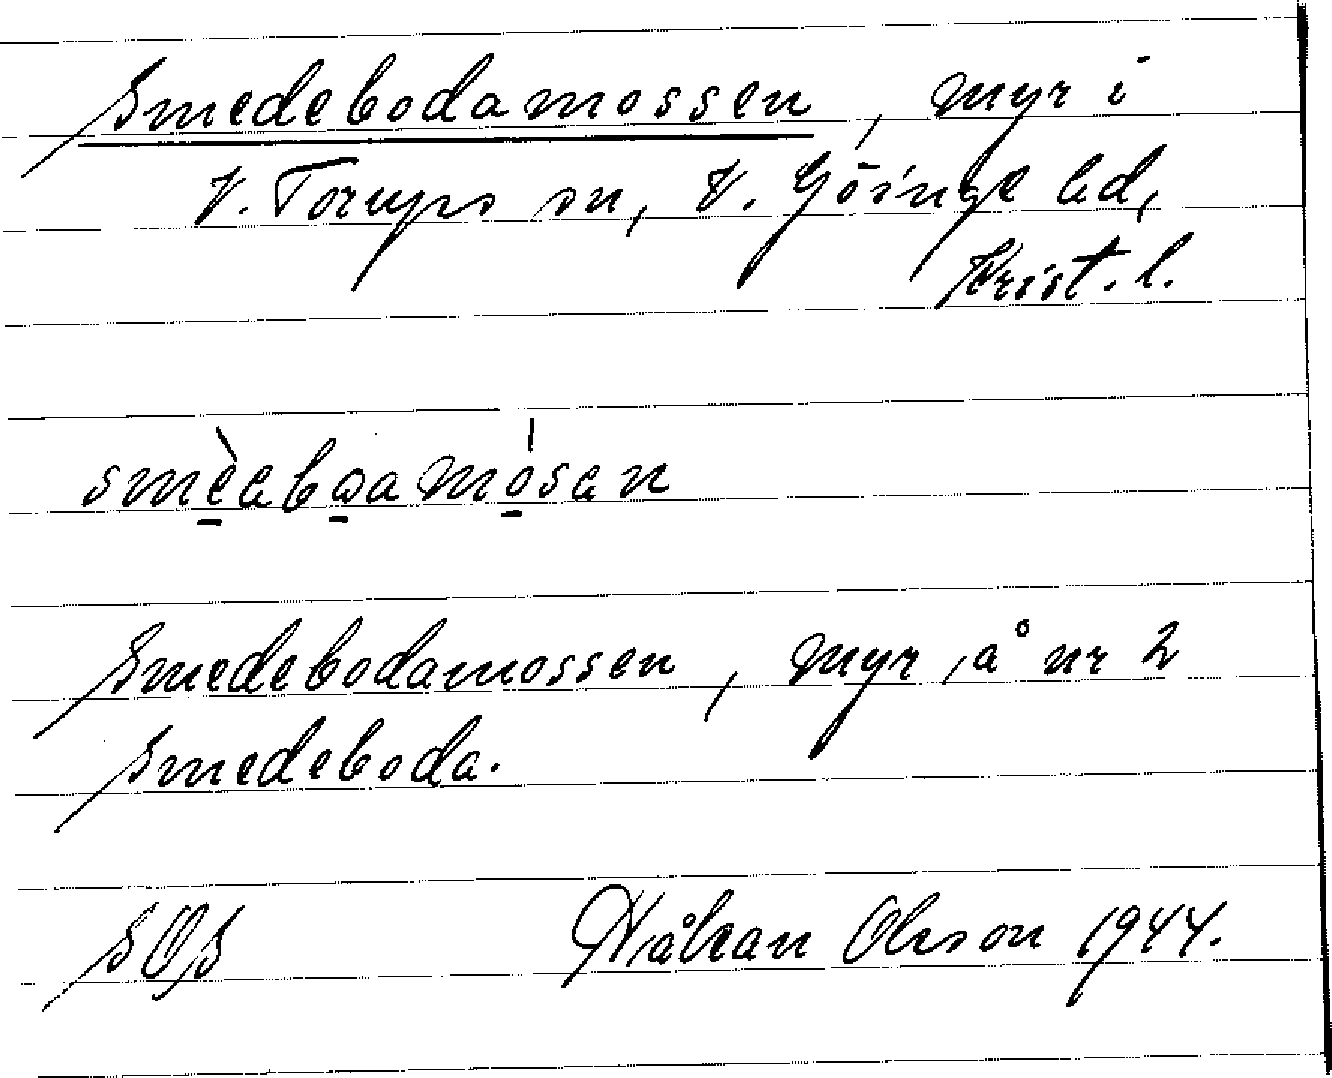 Smedebodamossen, myr i
V. Torups sn, V. Göinge hd,
Krist. l.
smèabọamósan
Smedebodamossen, myr, å nr 2
Smedeboda.
SOS Håkan Olsson 1944.